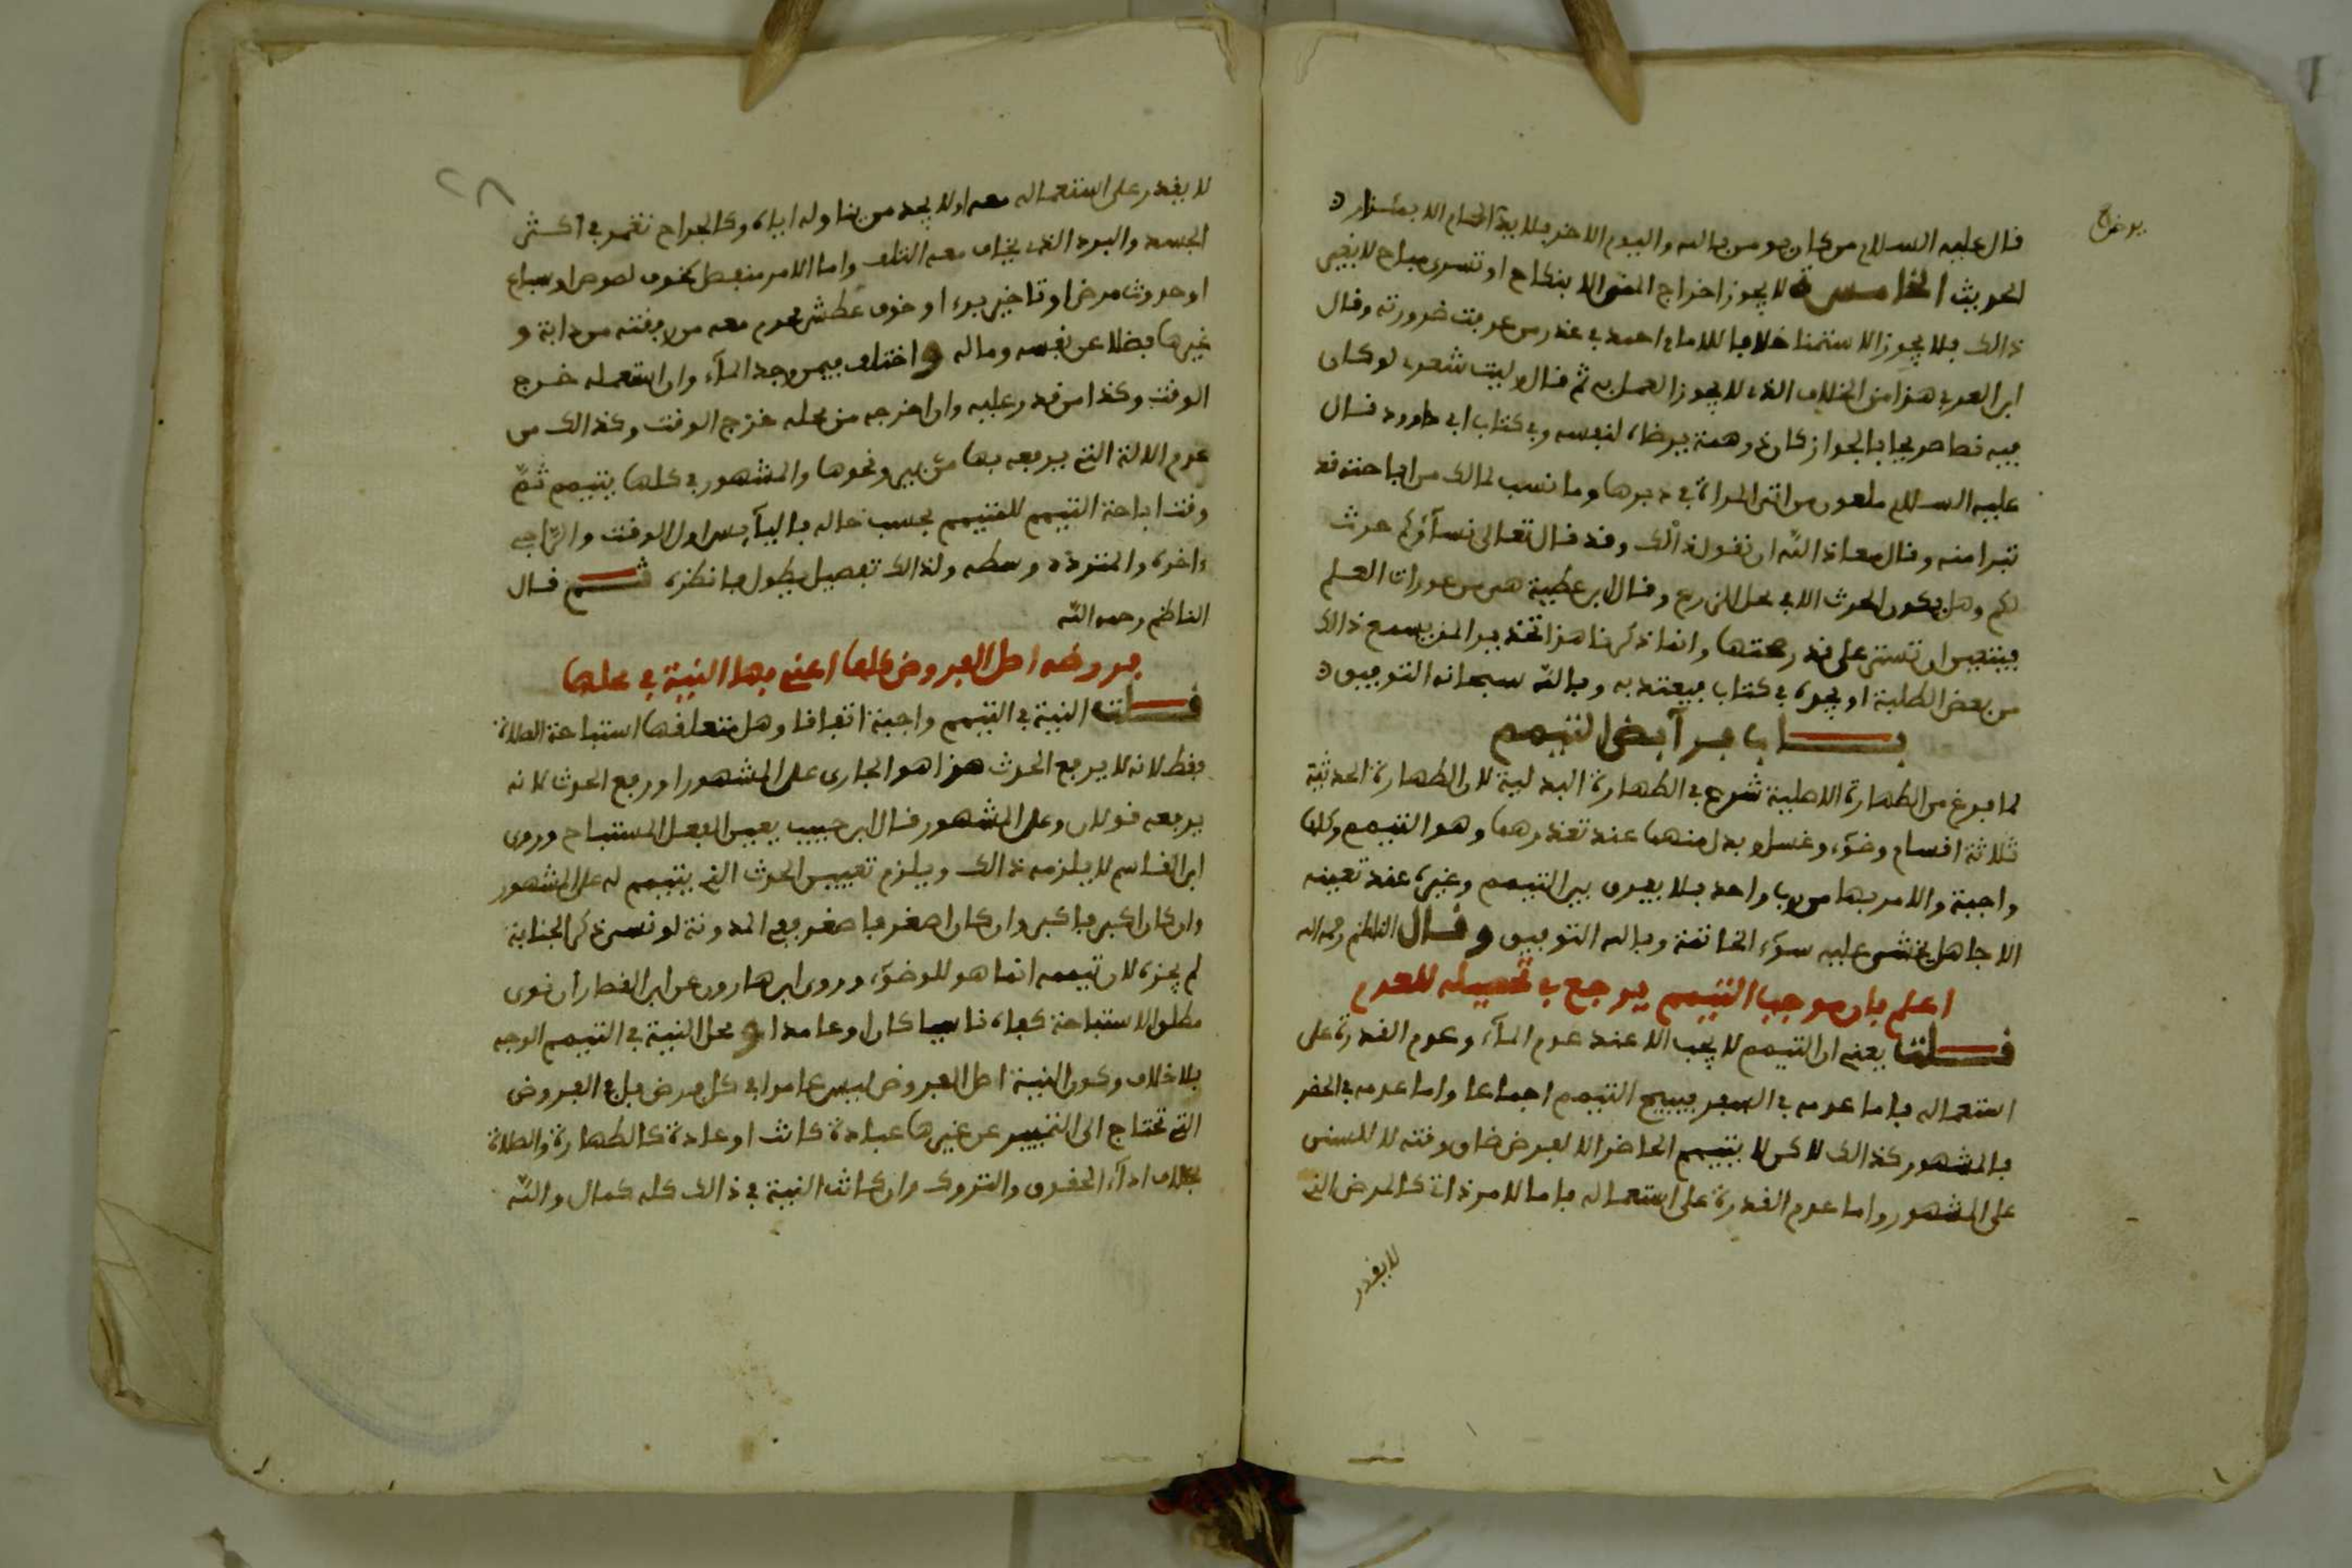 قال عليه السلام من كان يومن بالله واليوم الاخر فلا يدخل الحمام الا بمئزار
الحديث الخامسة لا يجوز اخراج المنى الا بنكاح او تسرى مباح لا بغير
ذالك فلا يجوز الاستمنا خلافا للامام احمد في عذر من عرفت ضرورته وقال
ابن العربي هذا من الخلاف الذى لا يجوز العمل به ثم قال وليت شعرى لو كان
فيه نصا صريحا بالجواز كان ذو همة يرضاه لنفسه وفي كتاب ابي داوود قال
عليه السلام ملعون من اتى المراة في دبرها وما نسب لمالك من اباحته قد
تبرا منه وقال معاذ الله ان نقول ذالك وقد قال تعالى نساؤكم حرث
لكم وهل يكون الحرث الا في محل الزرع وقال ابن عطية هى من عورات العلم
فينبغي ان تستر على قدر همتها وانما ذكرنا هذا تحذيرا لمن يسمع ذالك
من بعض الطلبة او يجوه في كتاب فيعتد به وبالله سبحانه التوفيق
باب فرآيض التيمم
لما فرغ من الطهارة الاصلية شرع في الطهارة البدلية لان الطهارة الحدثية
ثلاثة اقسام وضوء وغسل وبدل منهما عند تعذرهما وهو التيمم وكلها
واجبة والامر بها من باب واحد فلا يفرق بين التيمم وغيره عند تعينه
الا جاهل يخشى عليه سوء الخاتمة وبالله التوفيق وقال الناظم رحمه الله
اعلم بان موجب التيمم يرجع في تحصيله للعدم
قلت يعنى ان التيمم لا يجب الا عند عدم المآء وعدم القدرة على
استعماله فاما عدمه في السفر فيبيح التيمم اجماعا واما عدمه في الحضر
فالمشهور كذالك لاكن لا يتيمم الحاضر الا لفرض ضاق وقته لا للسنن
على المشهور واما عدم القدرة على استعماله فاما لامر ذاتى كالمرض الذى
لا يقدر
٢٨
لا يقدر على استعماله معه او لا يجد من يناوله اياه وكالجراح تغمر في اكثر
الجسد والبرد الذى يخاف معه التلف واما لامر منفصل كخوف لصوص او سباع
او حدوث مرض او تاخير برء او خوف عطش محرم معه من رفقته من دابة و
غيرها فضلا عن نفسه وماله واختلف فيمن وجد المآء وان استعمله خرج
الوقت وكذا من قدر عليه وان اخرجه من محله خرج الوقت وكذالك من
عدم الالة التى يرفعه بها من بير ونحوها والمشهور في كلها يتيمم ثم
وقت اباحة التيمم للمتيمم بحسب حاله فاليآيس اول الوقت والراجى
ءاخره والمتردد وسطه ولذالك تفصيل يطول فانظره ثم قال
الناظم رحمه الله
فروضه اصل الفروض كلها اعنى بها النية في محلها
قلت النية في التيمم واجبة اتفاقا وهل متعلقها استباحة الصلاة
فقط لانه لا يرفع الحدث هذا هو الجارى على المشهور او رفع الحدث لانه
يرفعه قولان وعلى المشهور قال ابن حبيب يعين الفعل المستباح وروى
ابن القاسم لا يلزمه ذالك ويلزم تعيين الحدث الذى يتيمم له على المشهور
وان كان اكبر فاكبر وان كان اصغر فاصغر ففي المدونة لو نسى ذكر الجنابة
لم يجزه لان تيممه انما هو للوضوء وروى ابن هارون عن ابن القصار ان نوى
مطلق الاستباحة كفاه ناسيا كان او عامدا ومحل النية في التيمم الوجه
بلا خلاف وكون النية اصل الفروض ليس عاما في كل فرض بل في الفروض
التى تحتاج الى التمييز عن غيرها عبادة كانت او عادة كالطهارة والصلاة
بخلاف ادآء الحقوق والتروك وان كانت النية في ذالك كله كمال والله